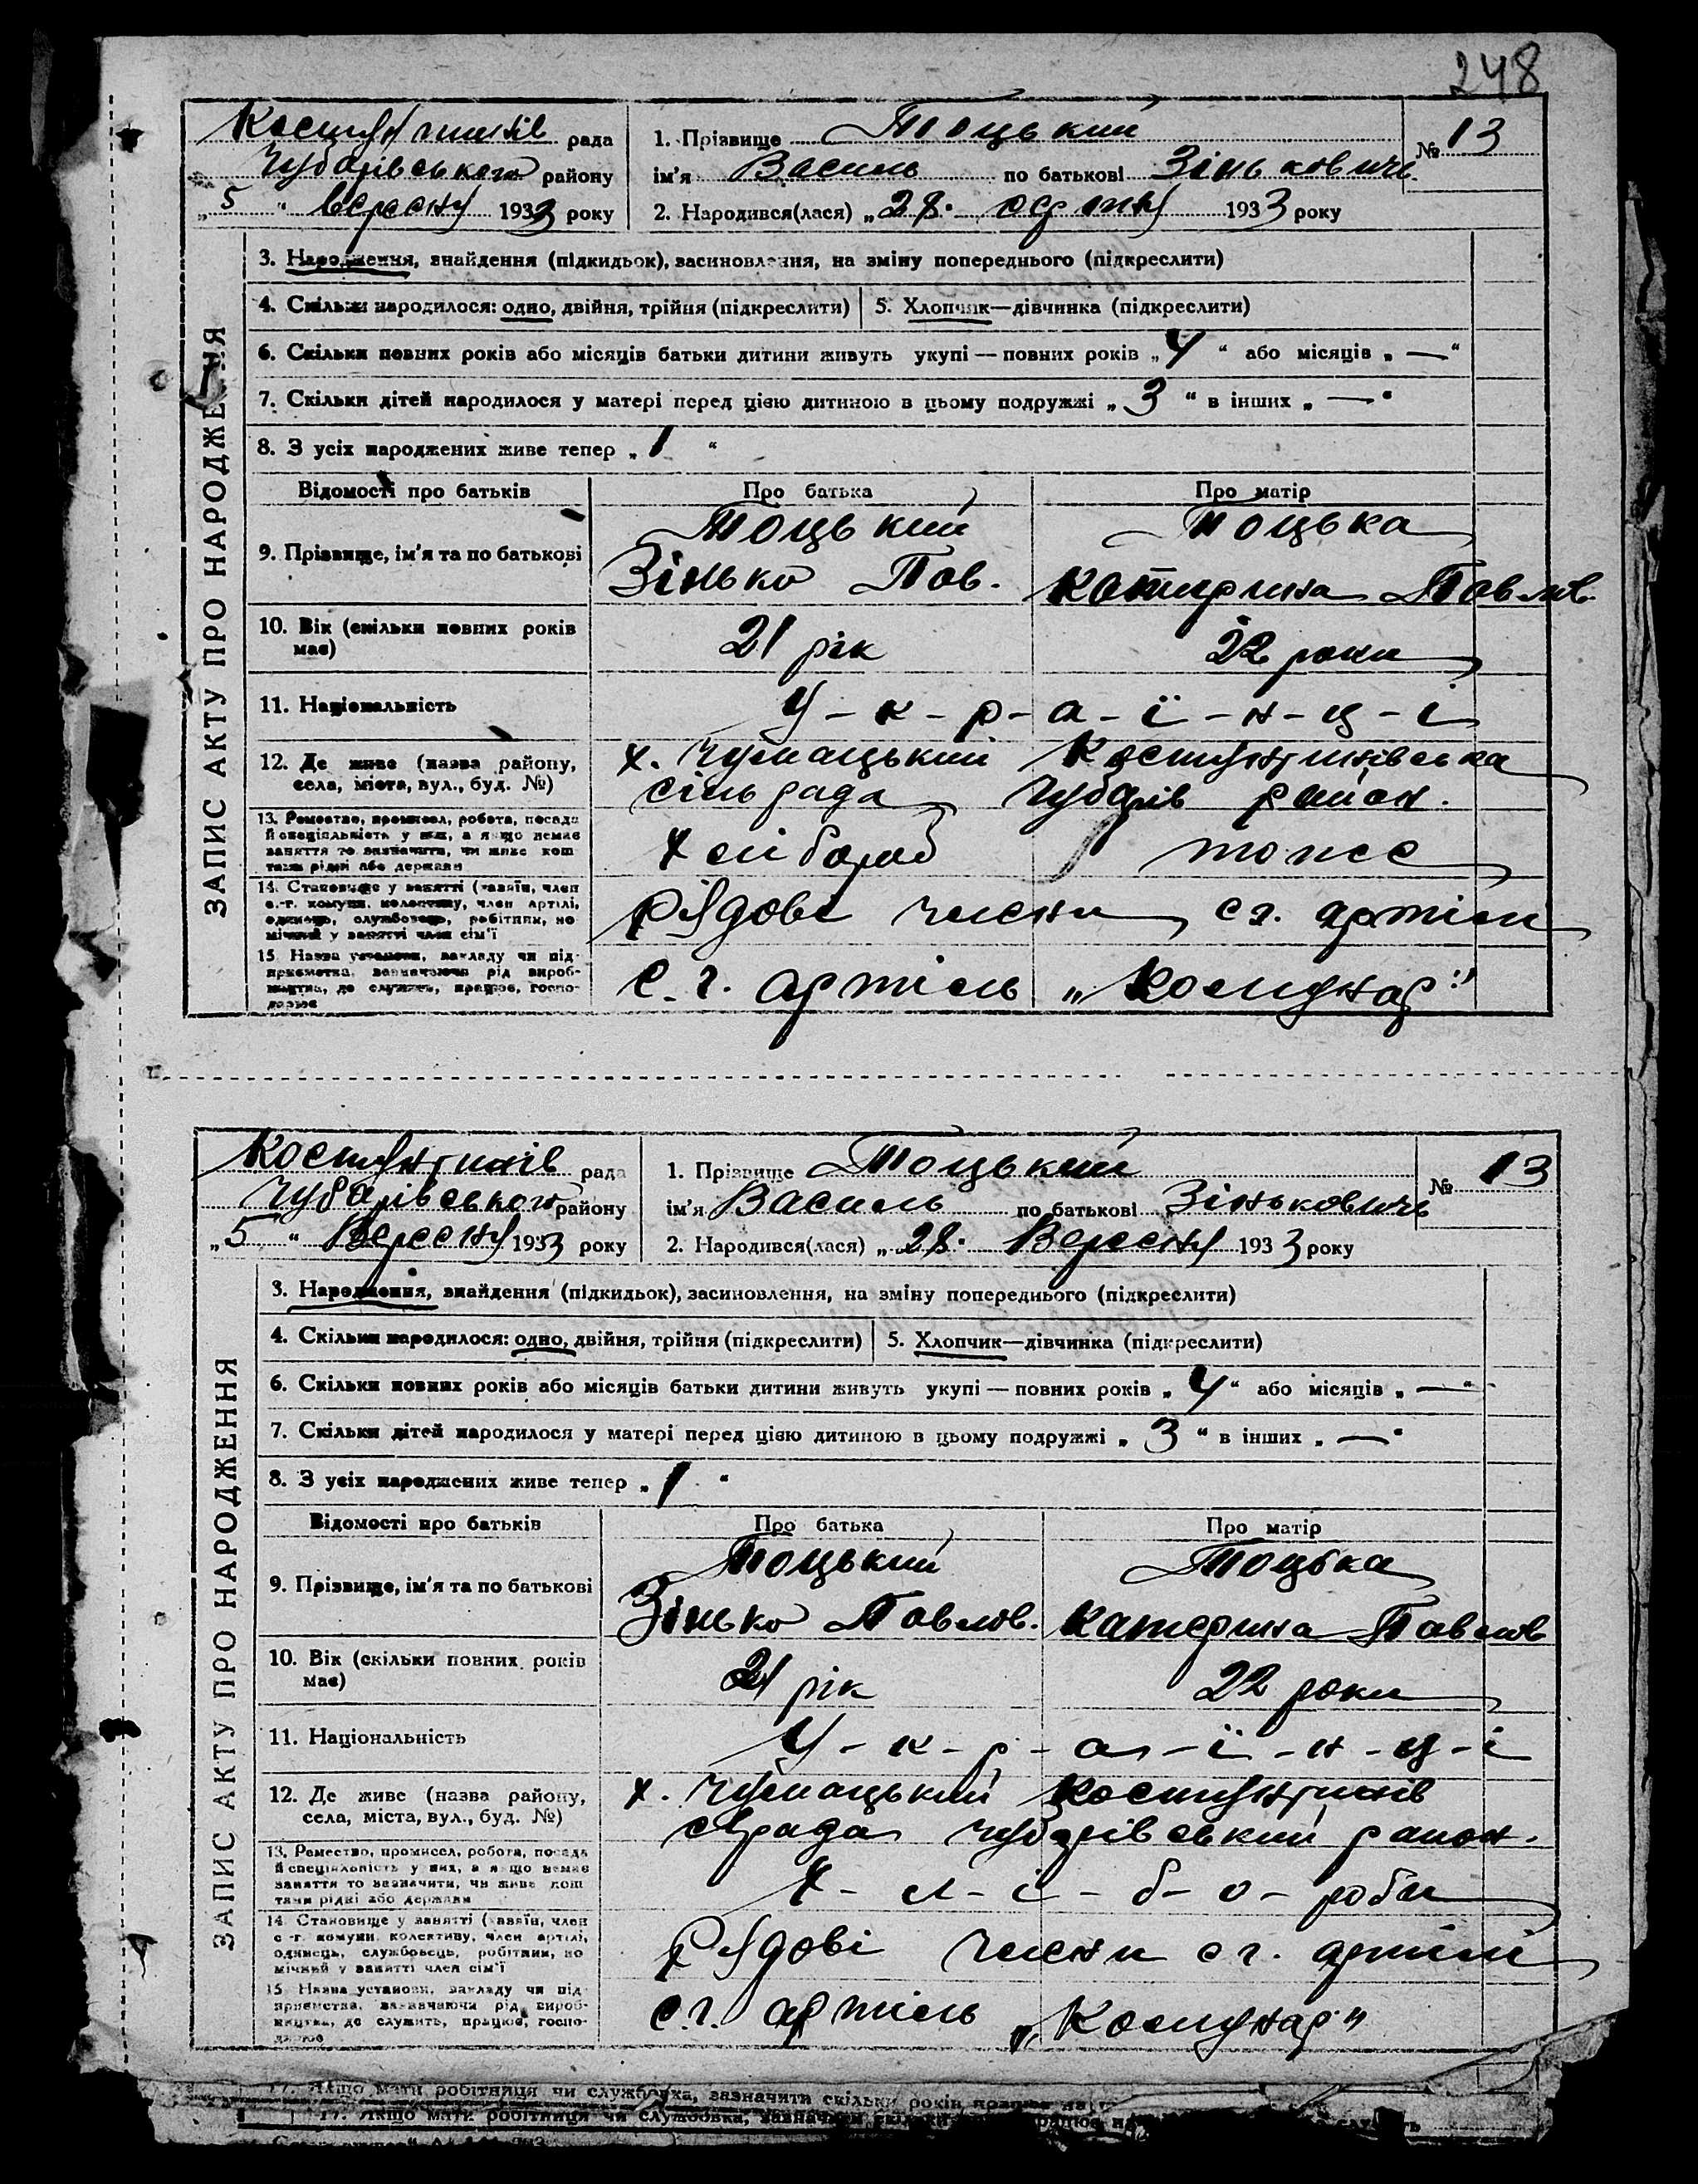 248
Костянтинів рада
Чубарівського району
„5“ вересня 1933 року
1. Прізвище Тоцький
№ 13
ім'я Василь по батькові Зіньковичь
2. Народився(лася) „28“ серпня 1933 року
ЗАПИС АКТУ ПРО НАРОДЖЕННЯ
3. Народження, знайдення (підкидьок), засиновлення, на зміну попереднього (підкреслити)
4. Скільки народилося: одно, двійня, трійня (підкреслити) 5. Хлопчик—дівчинка (підкреслити)
6. Скільки повних років або місяців батьки дитини живуть укупі — повних років „4“ або місяців „—“
7. Скільки дітей народилося у матері перед цією дитиною в цьому подружжі „3“ в інших „—“
8. З усіх народжених живе тепер „1“
Відомості про батьків Про батька Про матір
9. Прізвище, ім'я та по батькові
Тоцький Тоцька
Зінько Пав. Катирина Павлов.
10. Вік (скільки повних років має)
21 рік 22 роки
11. Національність У-к-р-а-ї-н-ц-і
12. Де живе (назва району, села, міста, вул., буд. №)
х. Чумацький Костянтинівська
сільрада Чубарів район.
13. Ремество, промисел, робота, посада
й спеціяльність у них, а якщо немає
заняття то зазначити, чи живе кош
тами рідні або держави
хлібороб тоже
14. Становище у занятті (хазяїн, член
с.-г. комуни, колективу, член артілі,
одинець, службовець, робітник, по
мічний у занятті член сім'ї
рядові члени с.г. артіли
15. Назва установи, закладу чи під-
приємства, зазначаючи рід вироб-
ництва, де служить, працює, госпо-
дарює
с.г. артіль „Комунар“
Костянтинів рада
Чубарівського району
„5“ Вересня 1933 року
1. Прізвище Тоцький
№ 13
ім'я Василь по батькові Зіньковичь
2. Народився(лася) „28“ Вересня 1933 року
ЗАПИС АКТУ ПРО НАРОДЖЕННЯ
3. Народження, знайдення (підкидьок), засиновлення, на зміну попереднього (підкреслити)
4. Скільки народилося: одно, двійня, трійня (підкреслити) 5. Хлопчик—дівчинка (підкреслити)
6. Скільки повних років або місяців батьки дитини живуть укупі — повних років „4“ або місяців „—“
7. Скільки дітей народилося у матері перед цією дитиною в цьому подружжі „3“ в інших „—“
8. З усіх народжених живе тепер „1“
Відомості про батьків Про батька Про матір
9. Прізвище, ім'я та по батькові
Тоцький Тоцька
Зінько Павлов. Катерина Павлов
10. Вік (скільки повних років має)
21 рік 22 роки
11. Національність У-к-р-а-ї-н-ц-і
12. Де живе (назва району, села, міста, вул., буд. №)
х. Чумацький Костянтинів
с/рада Чубарівський район.
13. Ремество, промисел, робота, посада
й спеціяльність у них, а якщо немає
заняття то зазначити, чи живе кош
тами рідні або держави
Х-л-і-б-о-роби
14. Становище у занятті (хазяїн, член
с.-г. комуни, колективу, член артілі,
одинець, службовець, робітник, по
мічний у занятті член сім'ї
Рядові члени с.г. артілі
15. Назва установи, закладу чи під-
приємства, зазначаючи рід вироб-
ництва, де служить, працює, госпо-
дарює
с.г. артіль „Комунар“
17. Якщо мати робітниця чи службовка, зазначити скільки років працює
17. Якщо мати робітниця чи службовка, зазначити скільки